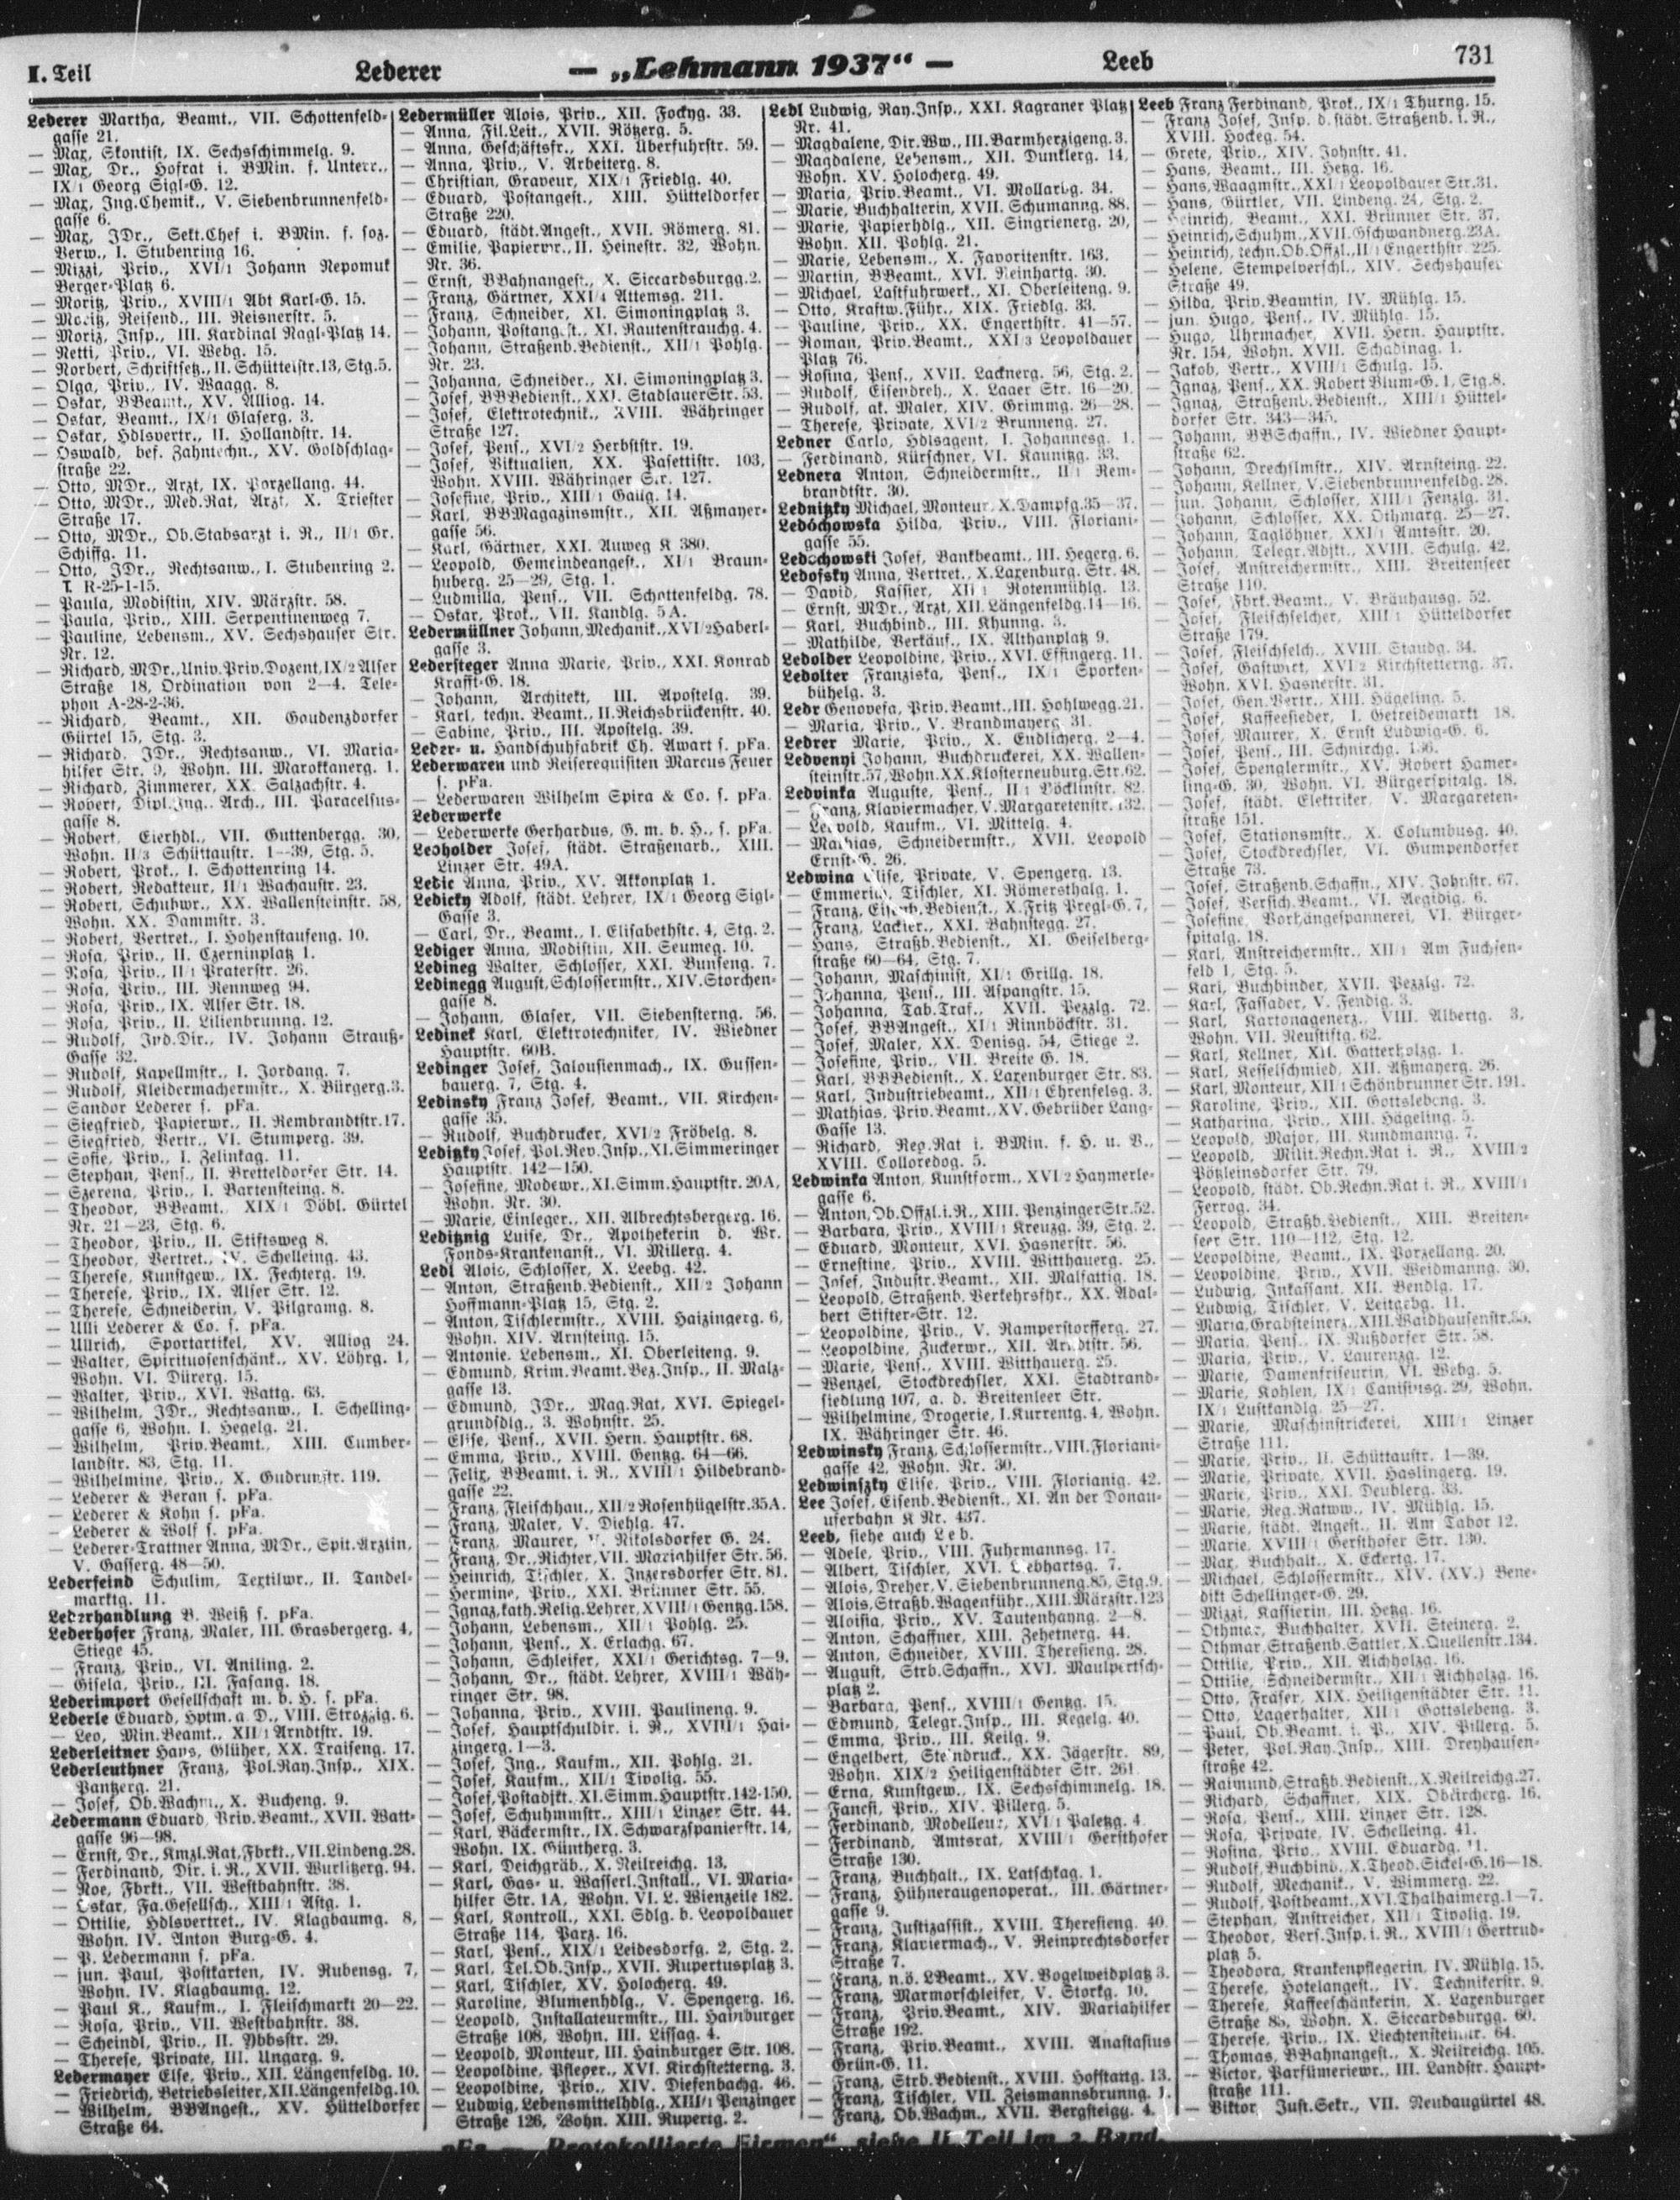 I. Teil
Lederer
— „Lehmann 1937“ —
Leeb
731
Lederer Martha, Beamt., VII. Schottenfeld-
gasse 21.
— Max, Skontist, IX. Sechsschimmelg. 9.
— Max, Dr., Hofrat i. BMin. f. Unterr.,
IX/1 Georg Sigl-G. 12.
— Max, Ing.Chemik., V. Siebenbrunnenfeld-
gasse 6.
— Max, JDr., Sekt.Chef i. BMin. f. soz.
Verw., I. Stubenring 16.
— Mizzi, Priv., XVI/1 Johann Nepomuk
Berger-Platz 6.
— Moritz, Priv., XVIII/1 Abt Karl-G. 15.
— Moritz, Reisend., III. Reisnerstr. 5.
— Moriz, Insp., III. Kardinal Nagl-Platz 14.
— Netti, Priv., VI. Webg. 15.
— Norbert, Schriftsetz., II. Schüttelstr.13, Stg.5.
— Olga, Priv., IV. Waagg. 8.
— Oskar, BBeamt., XV. Alliog. 14.
— Oskar, Beamt., IX/1 Glaserg. 3.
— Oskar, Hdlsvertr., II. Hollandstr. 14.
— Oswald, bef. Zahntechn., XV. Goldschlag-
straße 22.
— Otto, MDr., Arzt, IX. Porzellang. 44.
— Otto, MDr., Med.Rat, Arzt, X. Triester
Straße 17.
— Otto, MDr., Ob.Stabsarzt i. R., II/1 Gr.
Schiffg. 11.
— Otto, JDr., Rechtsanw., I. Stubenring 2.
T. R-25-1-15.
— Paula, Modistin, XIV. Märzstr. 58.
— Paula, Priv., XIII. Serpentinenweg 7.
— Pauline, Lebensm., XV. Sechshauser Str.
Nr. 12.
— Richard, MDr., Univ.Priv.Dozent, IX/2 Alser
Straße 18, Ordination von 2—4. Tele-
phon A-28-2-36.
— Richard, Beamt., XII. Gaudenzdorfer
Gürtel 15, Stg. 3.
— Richard, JDr., Rechtsanw., VI. Maria-
hilfer Str. 9, Wohn. III. Marokkanerg. 1.
— Richard, Zimmerer, XX. Salzachstr. 4.
— Robert, Dipl.Ing. Arch., III. Paracelsus-
gasse 8.
— Robert, Eierhdl., VII. Guttenbergg. 30,
Wohn. II/3 Schüttaustr. 1—39, Stg. 5.
— Robert, Prok., I. Schottenring 14.
— Robert, Redakteur, II/1 Wachaustr. 23.
— Robert, Schuhwr., XX. Wallensteinstr. 58,
Wohn. XX. Dammstr. 3.
— Robert, Vertret., I. Hohenstaufeng. 10.
— Rosa, Priv., II. Czerninplatz 1.
— Rosa, Priv., II/1 Praterstr. 26.
— Rosa, Priv., III. Rennweg 94.
— Rosa, Priv., IX. Alser Str. 18.
— Rosa, Priv., II. Lilienbrunng. 12.
— Rudolf, Ind.Dir., IV. Johann Strauß-
Gasse 32.
— Rudolf, Kapellmstr., I. Jordang. 7.
— Rudolf, Kleidermachermstr., X. Bürgerg.3.
— Sandor Lederer s. pFa.
— Siegfried, Papierwr., II. Rembrandtstr.17.
— Siegfried, Vertr., VI. Stumperg. 39.
— Sofie, Priv., I. Zelinkag. 11.
— Stephan, Pens., II. Bretteldorfer Str. 14.
— Szerena, Priv., I. Bartensteing. 8.
— Theodor, BBeamt., XIX/1 Döbl. Gürtel
Nr. 21—23, Stg. 6.
— Theodor, Priv., II. Stiftsweg 8.
— Theodor, Vertret., IV. Schelleing. 43.
— Therese, Kunstgew., IX. Fechterg. 19.
— Therese, Priv., IX. Alser Str. 12.
— Therese, Schneiderin, V. Pilgramg. 8.
— Ulli Lederer & Co. s. pFa.
— Ullrich, Sportartikel, XV. Alliog 24.
— Walter, Spirituosenschänk., XV. Löhrg. 1,
Wohn. VI. Dürerg. 15.
— Walter, Priv., XVI. Wattg. 63.
— Wilhelm, JDr., Rechtsanw., I. Schelling-
gasse 6, Wohn. I. Hegelg. 21.
— Wilhelm, Priv.Beamt., XIII. Cumber-
landstr. 83, Stg. 11.
— Wilhelmine, Priv., X. Gudrunstr. 119.
— Lederer & Beran s. pFa.
— Lederer & Kohn s. pFa.
— Lederer & Wolf s. pFa.
— Lederer-Trattner Anna, MDr., Spit.Ärztin,
V. Gasserg. 48—50.
Lederfeind Schulim, Textilwr., II. Tandel-
marktg. 11.
Lederhandlung B. Weiß s. pFa.
Lederhofer Franz, Maler, III. Grasbergerg. 4,
Stiege 45.
— Franz, Priv., VI. Aniling. 2.
— Gisela, Priv., III. Fasang. 18.
Lederimport Gesellschaft m. b. H. s. pFa.
Lederle Eduard, Hptm. a. D., VIII. Strozzig. 6.
— Leo, Min.Beamt., XII/1 Arndtstr. 19.
Lederleitner Hans, Glüher, XX. Traiseng. 17.
Lederleuthner Franz, Pol.Ray.Insp., XIX.
Pantzerg. 21.
— Josef, Ob.Wachm., X. Bucheng. 9.
Ledermann Eduard, Priv.Beamt., XVII. Watt-
gasse 96—98.
— Ernst, Dr., Kmzl.Rat, Fbrkt., VII.Lindeng.28.
— Ferdinand, Dir. i. R., XVII. Wurlitzerg. 94.
— Noe, Fbrkt., VII. Westbahnstr. 38.
— Oskar, Fa.Gesellsch., XIII/1 Astg. 1.
— Ottilie, Hdlsvertret., IV. Klagbaumg. 8,
Wohn. IV. Anton Burg-G. 4.
— P. Ledermann s. pFa.
— jun. Paul, Postkarten, IV. Rubensg. 7,
Wohn. IV. Klagbaumg. 12.
— Paul K., Kaufm., I. Fleischmarkt 20—22.
— Rosa, Priv., VII. Westbahnstr. 38.
— Scheindl, Priv., II. Ybbsstr. 29.
— Therese, Private, III. Ungarg. 9.
Ledermayer Else, Priv., XII. Längenfeldg. 10.
— Friedrich, Betriebsleiter, XII.Längenfeldg.10.
— Wilhelm, BBAngest., XV. Hütteldorfer
Straße 64.
Ledermüller Alois, Priv., XII. Fockyg. 33.
— Anna, Fil.Leit., XVII. Rötzerg. 5.
— Anna, Geschäftsfr., XXI. Überfuhrstr. 59.
— Anna, Priv., V. Arbeiterg. 8.
— Christian, Graveur, XIX/1 Friedlg. 40.
— Eduard, Postangest., XIII. Hütteldorfer
Straße 220.
— Eduard, städt.Angest., XVII. Römerg. 81.
— Emilie, Papierwr., II. Heinestr. 32, Wohn.
Nr. 36.
— Ernst, BBahnangest., X. Siccardsburgg.2.
— Franz, Gärtner, XXI/4 Attemsg. 211.
— Franz, Schneider, XI. Simoningplatz 3.
— Johann, Postangest., XI. Rautenstrauchg. 4.
— Johann, Straßenb.Bedienst., XII/1 Pohlg.
Nr. 23.
— Johanna, Schneider., XI. Simoningplatz 3.
— Josef, BBBedienst., XXI. Stadlauer Str. 53.
— Josef, Elektrotechnik., XVIII. Währinger
Straße 127.
— Josef, Pens., XVI/2 Herbststr. 19.
— Josef, Viktualien, XX. Pasettistr. 103,
Wohn. XVIII. Währinger Str. 127.
— Josefine, Priv., XIII/1 Gallg. 14.
— Karl, BBMagazinsmstr., XII. Aßmayer-
gasse 56.
— Karl, Gärtner, XXI. Auweg K 380.
— Leopold, Gemeindeangest., XI/1 Braun-
huberg. 25—29, Stg. 1.
— Ludmilla, Pens., VII. Schottenfeldg. 78.
— Oskar, Prok., VII. Kandlg. 5 A.
Ledermüllner Johann, Mechanik., XVI/2 Haberl-
gasse 3.
Ledersteger Anna Marie, Priv., XXI. Konrad
Krafft-G. 18.
— Johann, Architekt, III. Apostelg. 39.
— Karl, techn. Beamt., II.Reichsbrückenstr. 40.
— Sabine, Priv., III. Apostelg. 39.
Leder- u. Handschuhfabrik Ch. Awart s. pFa.
Lederwaren und Reiserequisiten Marcus Feuer
s. pFa.
— Lederwaren Wilhelm Spira & Co. s. pFa.
Lederwerke
— Lederwerke Gerhardus, G. m. b. H., s. pFa.
Ledholder Josef, städt. Straßenarb., XIII.
Linzer Str. 49A.
Ledic Anna, Priv., XV. Akkonplatz 1.
Ledicky Adolf, städt. Lehrer, IX/1 Georg Sigl-
Gasse 3.
— Carl, Dr., Beamt., I. Elisabethstr. 4, Stg. 2.
Lediger Anna, Modistin, XII. Seumeg. 10.
Ledineg Walter, Schlosser, XXI. Bunseng. 7.
Ledinegg August, Schlossermstr., XIV. Storchen-
gasse 8.
— Johann, Glaser, VII. Siebensterng. 56.
Ledinek Karl, Elektrotechniker, IV. Wiedner
Hauptstr. 60B.
Ledinger Josef, Jalousienmach., IX. Gussen-
bauerg. 7, Stg. 4.
Ledinsky Franz Josef, Beamt., VII. Kirchen-
gasse 35.
— Rudolf, Buchdrucker, XVI/2 Fröbelg. 8.
Leditzky Josef, Pol.Rev.Insp., XI.Simmeringer
Hauptstr. 142—150.
— Josefine, Modewr., XI.Simm.Hauptstr. 20A,
Wohn. Nr. 30.
— Marie, Einleger., XII. Albrechtsbergerg. 16.
Leditznig Luise, Dr., Apothekerin d. Wr.
Fonds-Krankenanst., VI. Millerg. 4.
Ledl Alois, Schlosser, X. Leebg. 42.
— Anton, Straßenb.Bedienst., XII/2 Johann
Hoffmann-Platz 15, Stg. 2.
— Anton, Tischlermstr., XVIII. Haizingerg. 6,
Wohn. XIV. Arnsteing. 15.
— Antonie, Lebensm., XI. Oberleiteng. 9.
— Edmund, Krim.Beamt.Bez.Insp., II. Malz-
gasse 13.
— Edmund, JDr., Mag.Rat, XVI. Spiegel-
grundsdlg., 3. Wohnstr. 25.
— Elise, Pens., XVII. Hern. Hauptstr. 68.
— Emma, Priv., XVIII. Gentzg. 64—66.
— Felix, BBeamt. i. R., XVIII/1 Hildebrand-
gasse 22.
— Franz, Fleischhau., XII/2 Rosenhügelstr.35A.
— Franz, Maler, V. Diehlg. 47.
— Franz, Maurer, V. Nikolsdorfer G. 24.
— Franz, Dr., Richter, VII. Mariahilfer Str. 56.
— Heinrich, Tischler, X. Inzersdorfer Str. 81.
— Hermine, Priv., XXI. Brünner Str. 55.
— Ignaz, kath.Relig.Lehrer, XVIII/1 Gentzg.158.
— Johann, Lebensm., XII/1 Pohlg. 25.
— Johann, Pens., X. Erlachg. 67.
— Johann, Schleifer, XXI/1 Gerichtsg. 7—9.
— Johann, Dr., städt. Lehrer, XVIII/1 Wäh-
ringer Str. 98.
— Johanna, Priv., XVIII. Paulineng. 9.
— Josef, Hauptschuldir. i. R., XVIII/1 Hai-
zingerg. 1—3.
— Josef, Ing., Kaufm., XII. Pohlg. 21.
— Josef, Kaufm., XII/1 Tivolig. 55.
— Josef, Postadjkt., XI.Simm.Hauptstr.142-150.
— Josef, Schuhmmstr., XIII/1 Linzer Str. 44.
— Karl, Bäckermstr., IX. Schwarzspanierstr. 14,
Wohn. IX. Güntherg. 3.
— Karl, Deichgräb., X. Neilreichg. 13.
— Karl, Gas- u. Wasserl.Install., VI. Maria-
hilfer Str. 1A, Wohn. VI. L. Wienzeile 182.
— Karl, Kontroll., XXI. Sdlg. b. Leopoldauer
Straße 114, Parz. 16.
— Karl, Pens., XIX/1 Leidesdorfg. 2, Stg. 2.
— Karl, Tel.Ob.Insp., XVII. Rupertusplatz 3.
— Karl, Tischler, XV. Holocherg. 49.
— Karoline, Blumenhdlg., V. Spengerg. 16.
— Leopold, Installateurmstr., III. Hainburger
Straße 108, Wohn. III. Lissag. 4.
— Leopold, Monteur, III. Hainburger Str. 108.
— Leopoldine, Pfleger., XVI. Kirchstetterng. 3.
— Leopoldine, Priv., XIV. Diefenbachg. 46.
— Ludwig, Lebensmittelhdlg., XIII/1 Penzinger
Straße 126, Wohn. XIII. Rupertg. 2.
Ledl Ludwig, Ray.Insp., XXI. Kagraner Platz
Nr. 41.
— Magdalene, Dir.Ww., III.Barmherzigeng.3.
— Magdalene, Lebensm., XII. Dunklerg. 14,
Wohn. XV. Holocherg. 49.
— Maria, Priv.Beamt., VI. Mollardg. 34.
— Marie, Buchhalterin, XVII. Schumanng. 88.
— Marie, Papierhdlg., XII. Singrienerg. 20,
Wohn. XII. Pohlg. 21.
— Marie, Lebensm., X. Favoritenstr. 163.
— Martin, BBeamt., XVI. Reinhartg. 30.
— Michael, Lastfuhrwerk., XI. Oberleiteng. 9.
— Otto, Kraftw.Führ., XIX. Friedlg. 33.
— Pauline, Priv., XX. Engerthstr. 41—57.
— Roman, Priv.Beamt., XXI/3 Leopoldauer
Platz 76.
— Rosina, Pens., XVII. Lacknerg. 56, Stg. 2.
— Rudolf, Eisendreh., X. Laaer Str. 16—20.
— Rudolf, ak. Maler, XIV. Grimmg. 26—28.
— Therese, Private, XVI/2 Brunneng. 27.
Ledner Carlo, Hdlsagent, I. Johannesg. 1.
— Ferdinand, Kürschner, VI. Kaunitzg. 33.
Lednera Anton, Schneidermstr., II/1 Rem-
brandtstr. 30.
Lednitzky Michael, Monteur, X.Dampfg.35—37.
Ledóchowska Hilda, Priv., VIII. Floriani-
gasse 55.
Ledochowski Josef, Bankbeamt., III. Hegerg. 6.
Ledofsky Anna, Vertret., X.Laxenburg. Str. 48.
— David, Kassier, XII/1 Rotenmühlg. 13.
— Ernst, MDr., Arzt, XII. Längenfeldg.14—16.
— Karl, Buchbind., III. Khunng. 3.
— Mathilde, Verkäuf., IX. Althanplatz 9.
Ledolder Leopoldine, Priv., XVI. Effingerg. 11.
Ledolter Franziska, Pens., IX/1 Sporken-
bühelg. 3.
Ledr Genovefa, Priv.Beamt., III. Hohlwegg.21.
— Maria, Priv., V. Brandmayerg. 31.
Ledrer Marie, Priv., X. Endlicherg. 2—4.
Ledvenyi Johann, Buchdruckerei, XX. Wallen-
steinstr.57, Wohn.XX.Klosterneuburg.Str.62.
Ledvinka Auguste, Pens., II/1 Böcklinstr. 82.
— Franz, Klaviermacher, V. Margaretenstr. 132.
— Leopold, Kaufm., VI. Mittelg. 4.
— Mathias, Schneidermstr., XVII. Leopold
Ernst-G. 26.
Ledwina Elise, Private, V. Spengerg. 13.
— Emmerich, Tischler, XI. Römersthalg. 1.
— Franz, Eisenb.Bedienst., X.Fritz Pregl-G.7.
— Franz, Lackier., XXI. Bahnstegg. 27.
— Hans, Straßb.Bedienst., XI. Geiselberg-
straße 60—64, Stg. 7.
— Johann, Maschinist, XI/1 Grillg. 18.
— Johanna, Pens., III. Aspangstr. 15.
— Johanna, Tab.Traf., XVII. Pezzlg. 72.
— Josef, BBAngest., XI/1 Rinnböckstr. 31.
— Josef, Maler, XX. Denisg. 54, Stiege 2.
— Josefine, Priv., VII. Breite G. 18.
— Karl, BBBedienst., X. Laxenburger Str. 83.
— Karl, Industriebeamt., XII/1 Ehrenfelsg. 3.
— Mathias, Priv.Beamt., XV. Gebrüder Lang-
Gasse 13.
— Richard, Reg.Rat i. BMin. f. H. u. V.,
XVIII. Colloredog. 5.
Ledwinka Anton, Kunstform., XVI/2 Haymerle-
gasse 6.
— Anton, Ob.Offzl.i.R., XIII. PenzingerStr.52.
— Barbara, Priv., XVIII/1 Kreuzg. 39, Stg. 2.
— Eduard, Monteur, XVI. Hasnerstr. 56.
— Ernestine, Priv., XVIII. Witthauerg. 25.
— Josef, Industr.Beamt., XII. Malfattig. 18.
— Leopold, Straßenb. Verkehrsfhr., XX. Adal-
bert Stifter-Str. 12.
— Leopoldine, Priv., V. Ramperstorfferg. 27.
— Leopoldine, Zuckerwr., XII. Arndtstr. 56.
— Marie, Pens., XVIII. Witthauerg. 25.
— Wenzel, Stockdrechsler, XXI. Stadtrand-
siedlung 107, a. d. Breitenleer Str.
— Wilhelmine, Drogerie, I.Kurrentg.4, Wohn.
IX. Währinger Str. 46.
Ledwinsky Franz, Schlossermstr., VIII.Floriani-
gasse 42, Wohn. Nr. 30.
Ledwinszky Elise, Priv., VIII. Florianig. 42.
Lee Josef, Eisenb.Bedienst., XI. An der Donau-
uferbahn K Nr. 437.
Leeb, siehe auch Leb.
— Adele, Priv., VIII. Fuhrmannsg. 17.
— Albert, Tischler, XVI. Liebhartsg. 7.
— Alois, Dreher, V. Siebenbrunneng.85, Stg.9.
— Alois, Straßb.Wagenführ., XIII. Märzstr.123
— Aloisia, Priv., XV. Tautenhayng. 2—8.
— Anton, Schaffner, XIII. Zehetnerg. 44.
— Anton, Schneider, XVIII. Theresieng. 28.
— August, Strb.Schaffn., XVI. Maulpertsch-
platz 2.
— Barbara, Pens., XVIII/1 Gentzg. 15.
— Edmund, Telegr.Insp., III. Kegelg. 40.
— Emma, Priv., III. Keilg. 9.
— Engelbert, Steindruck., XX. Jägerstr. 89,
Wohn. XIX/2 Heiligenstädter Str. 261
— Erna, Kunstgew., IX. Sechsschimmelg. 18.
— Fanesi, Priv., XIV. Pillerg. 5.
— Ferdinand, Modelleur, XVI/1 Paletzg. 4
— Ferdinand, Amtsrat, XVIII/1 Gersthofer
Straße 130.
— Franz, Buchhalt., IX. Latschkag. 1.
— Franz, Hühneraugenoperat., III. Gärtner-
gasse 9.
— Franz, Justizassist., XVIII. Theresieng. 40.
— Franz, Klaviermach., V. Reinprechtsdorfer
Straße 7.
— Franz, n.ö. LBeamt., XV. Vogelweidplatz 3.
— Franz, Marmorschleifer, V. Storkg. 10.
— Franz, Priv.Beamt., XIV. Mariahilfer
Straße 192.
— Franz, Priv.Beamt XVIII. Anastasius
Grün-G. 11.
— Franz, Strb.Bedienst., XVIII. Hofstattg. 13.
— Franz, Tischler, VII. Zeismannsbrunng. 1.
— Franz, Ob.Wachm., XVII. Bergsteigg. 4.
Leeb Franz Ferdinand, Prok., IX/1 Thurng. 15.
— Franz Josef, Insp. d. städt. Straßenb. i. R.,
XVIII. Hockeg. 54.
— Grete, Priv., XIV. Johnstr. 41.
— Hans, Beamt., III. Hetzg. 16.
— Hans, Waagmstr., XXI/1 Leopoldauer Str.31.
— Hans, Gürtler, VII. Lindeng. 24, Stg. 2.
— Heinrich, Beamt., XXI. Brünner Str. 37.
— Heinrich, Schuhm., XVII. Gschwandnerg.23A.
— Heinrich, techn.Ob.Offzl., II/1 Engerthstr. 225.
— Helene, Stempelverschl., XIV. Sechshauser
Straße 49.
— Hilda, Priv.Beamtin, IV. Mühlg. 15.
— jun. Hugo, Pens., IV. Mühlg. 15.
— Hugo, Uhrmacher, XVII. Hern. Hauptstr.
Nr. 154, Wohn. XVII. Schadinag. 1.
— Jakob, Vertr., XVIII/1 Schulg. 15.
— Ignaz, Pens., XX. Robert Blum-G. 1, Stg.8.
— Ignaz, Straßenb.Bedienst., XIII/1 Hüttel-
dorfer Str. 343—345.
— Johann, BBSchaffn., IV. Wiedner Haupt-
straße 62.
— Johann, Drechslmstr., XIV. Arnsteing. 22.
— Johann, Kellner, V.Siebenbrunnenfeldg. 28.
— jun. Johann, Schlosser, XIII/1 Fenzlg. 31.
— Johann, Schlosser, XX. Othmarg. 25—27.
— Johann, Taglöhner, XXI/1 Amtsstr. 20.
— Johann, Telegr.Adjkt., XVIII. Schulg. 42.
— Josef, Anstreichermstr., XIII. Breitenseer
Straße 110.
— Josef, Fbrk.Beamt., V. Bräuhausg. 52.
— Josef, Fleischselcher, XIII/1 Hütteldorfer
Straße 179.
— Josef, Fleischselch., XVIII. Staudg. 34.
— Josef, Gastwirt, XVI/2 Kirchstetterng. 37,
Wohn. XVI. Hasnerstr. 31.
— Josef, Gen.Vertr., XIII. Hägeling. 5.
— Josef, Kaffeesieder, I. Getreidemarkt 18.
— Josef, Maurer, X. Ernst Ludwig-G. 6.
— Josef, Pens., III. Schnirchg.
— Josef, Spenglermstr., XV. Robert Hamer-
ling-G. 30, Wohn. VI. Bürgerspitalg. 18.
— Josef, städt. Elektriker, V. Margareten-
straße 151.
— Josef, Stationsmstr., X. Columbusg. 40.
— Josef, Stockdrechsler, VI. Gumpendorfer
Straße 73.
— Josef, Straßenb.Schaffn., XIV. Johnstr. 67.
— Josef, Versich.Beamt., VI. Aegidig. 6.
— Josefine, Vorhängespannerei, VI. Bürger-
spitalg. 18.
— Karl, Anstreichermstr., XII/1 Am Fuchsen-
feld 1, Stg. 5.
— Karl, Buchbinder, XVII. Pezzlg. 72.
— Karl, Fassader, V. Fendig. 3.
— Karl, Kartonagenerz., VIII. Albertg. 3,
Wohn. VII. Neustiftg. 62.
— Karl, Kellner, XII. Gatterholzg. 1.
— Karl, Kesselschmied, XII. Aßmayerg. 26.
— Karl, Monteur, XII/1 Schönbrunner Str.191.
— Karoline, Priv., XII. Gottslebeng. 3.
— Katharina, Priv., XIII. Hägeling. 5.
— Leopold, Major, III. Kundmanng. 7.
— Leopold, Milit.Rechn.Rat i. R., XVIII/2
Pötzleinsdorfer Str. 79.
— Leopold, städt. Ob.Rechn.Rat i. R., XVIII/1
Ferrog. 34.
— Leopold, Straßb.Bedienst., XIII. Breiten-
seer Str. 110—112, Stg. 12.
— Leopoldine, Beamt., IX. Porzellang. 20.
— Leopoldine, Priv., XVII. Weidmanng. 30.
— Ludwig, Inkassant, XII. Bendlg. 17.
— Ludwig, Tischler, V. Leitgebg. 11.
— Maria, Grabsteinerz., XIII.Waidhausenstr.35.
— Maria, Pens., IX. Nußdorfer Str. 58.
— Maria, Priv., V. Laurenzg. 12.
— Marie, Damenfriseurin, VI. Webg. 5.
— Marie, Kohlen, IX/1 Canisiusg. 29, Wohn.
IX/1 Lustkandlg. 25—27.
— Marie, Maschinstrickerei, XIII/1 Linzer
Straße 111.
— Marie, Priv., II. Schüttaustr. 1—39.
— Marie, Private, XVII. Haslingerg. 19.
— Marie, Priv., XXI. Deublerg. 33.
— Marie, Reg.Ratww., IV. Mühlg. 15.
— Marie, städt. Angest., II. Am Tabor 12.
— Marie, XVIII/1 Gersthofer Str. 130.
— Max, Buchhalt., X. Eckertg. 17.
— Michael, Schlossermstr., XIV. (XV.) Bene-
dikt Schellinger-G. 29.
— Mizzi, Kassierin, III. Hetzg. 16.
— Othmar, Buchhalter, XVII. Steinerg. 2.
— Othmar, Straßenb.Sattler, X.Quellenstr.134.
— Ottilie, Priv., XII. Aichholzg. 16.
— Ottilie, Schneidermstr., XII/1 Aichholzg. 16.
— Otto, Fräser, XIX. Heiligenstädter Str. 11.
— Otto, Lagerhalter, XII/1 Gottslebeng. 3.
— Paul, Ob.Beamt. i. P., XIV. Pillerg. 5.
— Peter, Pol.Ray.Insp., XIII. Dreyhausen-
straße 42.
— Raimund, Straßb.Bedienst., X.Neilreichg.27.
— Richard, Schaffner, XIX. Obkircherg. 16.
— Rosa, Pens., XIII. Linzer Str. 128.
— Rosa, Private, IV. Schelleing. 41.
— Rosina, Priv., XVIII. Eduardg. 11.
— Rudolf, Buchbind., X.Theod.Sickel-G.16—18.
— Rudolf, Mechanik., V. Wimmerg. 22.
— Rudolf, Postbeamt., XVI.Thalhaimerg.1—7.
— Stephan, Anstreicher, XII/1 Tivolig. 19.
— Theodor, Vers.Insp.i.R., XVIII/1 Gertrud-
platz 5.
— Theodora, Krankenpflegerin, IV. Mühlg. 15.
— Therese, Hotelangest., IV. Technikerstr. 9.
— Therese, Kaffeeschänkerin, X. Laxenburger
Straße Wohn. X. Siccardsburgg. 60.
— Therese, Priv., IX. Liechtensteinstr. 64.
— Thomas, BBahnangest., X. Neilreichg. 105.
— Victor, Parfümeriewr., III. Landstr. Haupt-
straße 111.
— Viktor, Just.Sekr., VII. Neubaugürtel 48.
„pFa. = Protokollierte Firmen“ siehe II. Teil im 2. Band.